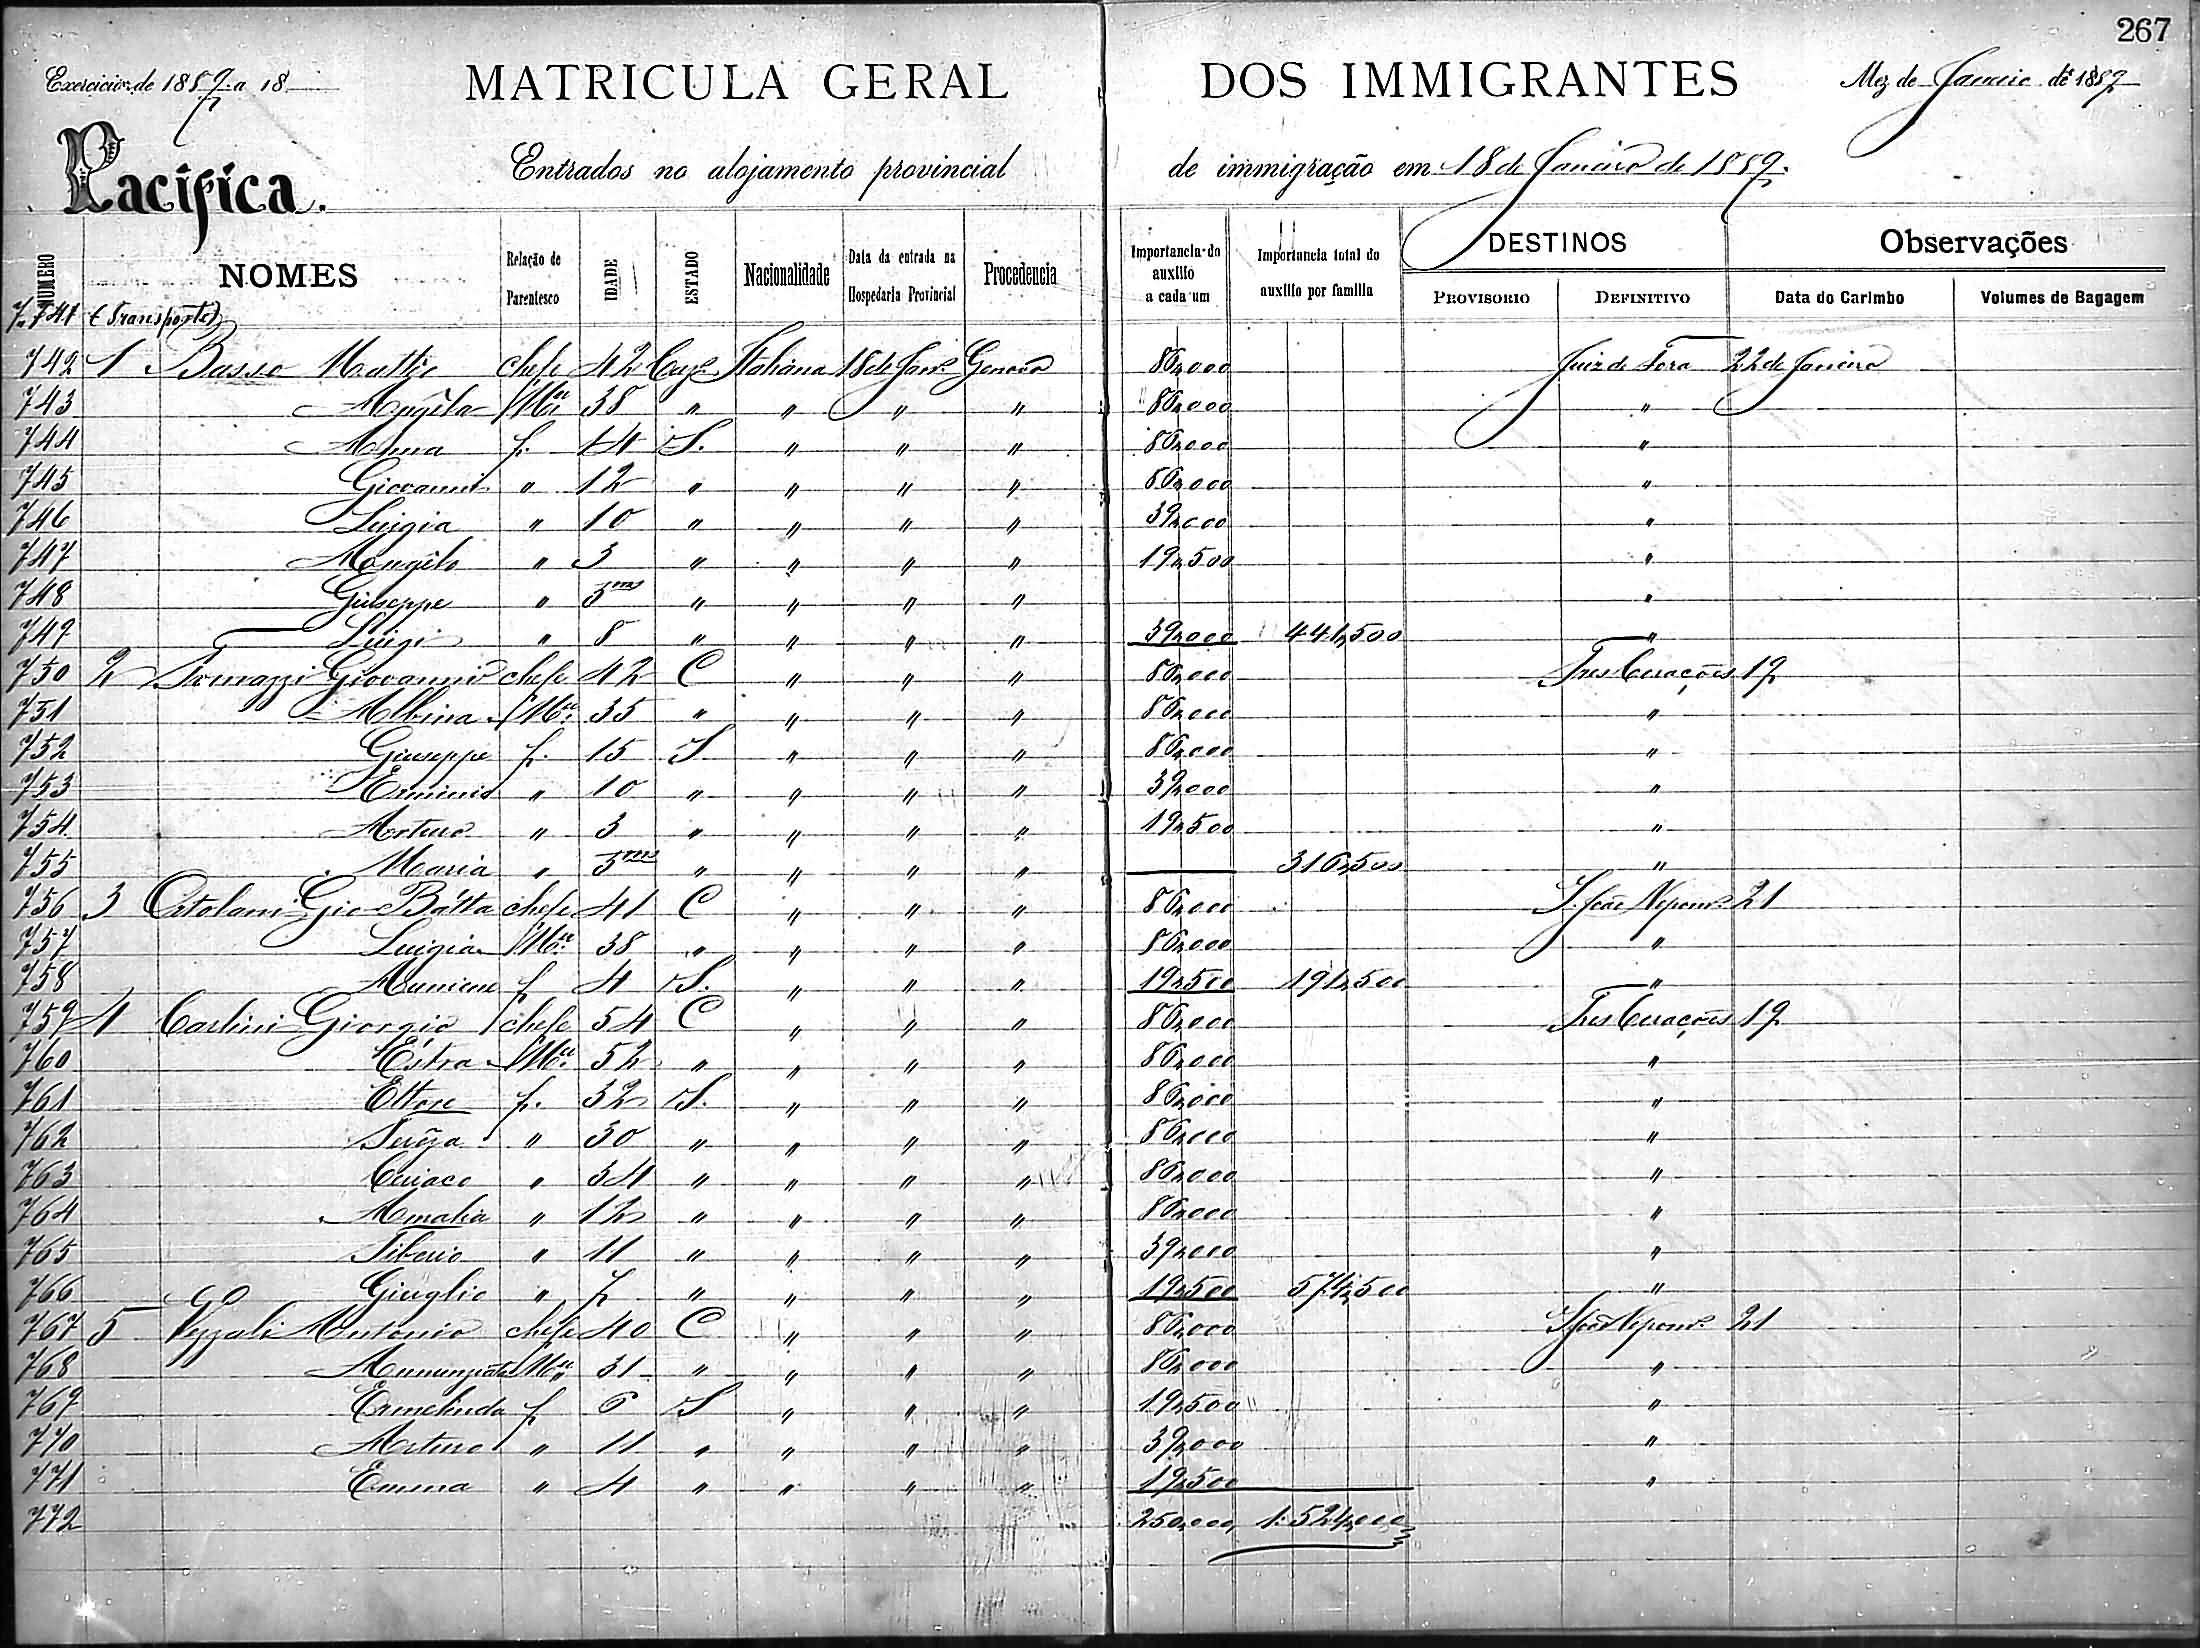 267
Exercicio de 1889 a 18
MATRICULA GERAL DOS IMMIGRANTES
Mez de Janeiro de 1889
Pacifica.
Entrados no alojamento provincial de immigração em 18 de Janeiro de 1889.
NUMERO NOMES Relação de Parentesco IDADE ESTADO Nacionalidade Data da entrada na Hospedaria Provincial Procedencia Importancia do auxilio a cada um Importancia total do auxilio por familia DESTINOS PROVISORIO DEFINITIVO Observações Data do Carimbo Volumes de Bagagem
7.741 (Transporte)
742 1 Basso Mattio chefe 42 Italiana 18 de Janº Genova 86,000 Juiz de Fora 22 de Janeiro
743 Angela Mer 38 " " " " 86,000 "
744 Anna f. 14 S. " " " 86,000 "
745 Giovanni " 12 " " " " 86,000 "
746 Luigia " 10 " " " " 39,000 "
747 Angelo " 3 " " " " 19,500 "
748 Giuseppe " 3ms " " " " "
749 Luigi " 8 " " " " 39,000 441,500 "
750 2 Tomazzi Giovanni chefe 42 C " " " 86,000 Tres Corações 19
751 Albina Mer 35 " " " " 86,000 "
752 Giuseppe f. 15 S " " " 86,000 "
753 Erminio " 10 " " " " 39,000 "
754 Arturo " 3 " " " " 19,500 "
755 Maria " 3ms " " " " 316,500 "
756 3 Ortolani Gio Batta chefe 41 C " " " 86,000 S. João Nepomº 21
757 Luigia Mer 38 " " " " 86,000 "
758 f 4 S. " " " 19,500 191,500 "
759 4 Carlini Giorgio chefe 54 C " " " 86,000 Tres Corações 19
760 Estra Mer 52 " " " " 86,000 "
761 Ettore f. 32 S. " " " 86,000 "
762 " 30 " " " " 86,000 "
763 " 34 " " " " 86,000 "
764 Amalia " 12 " " " " 86,000 "
765 Tiberio " 11 " " " " 39,000 "
766 Giuglio " 7 " " " " 19,500 574,500 "
767 5 Vezzali Antonio chefe 40 C " " " 86,000 S João Nepomº 21
768 Annunziata Mer 31 " " " " 86,000 "
769 Ermelinda f 6 S " " " 19,500 "
770 Arturo " 11 " " " " 39,000 "
771 Emma " 4 " " " " 19,500 "
772 250,000 1:524,000